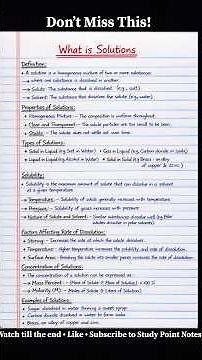 Don't Miss This!
What is Solutions
Definition:
→ A solution is a homogeneous mixture of two or more substances
→ where one substance is dissolved in another.
→ Solute: The substance that is dissolved (e.g., salt)
→ Solvent: The substance that dissolves the solute (e.g., water)
Properties of Solutions:
→ Homogeneous Mixture – The composition is uniform throughout.
→ Clear and Transparent – The solute particles are too small to be seen.
→ Stable – The solute does not settle out over time.
Types of Solutions:
→ Solid in Liquid (e.g. Salt in Water)
→ Gas in Liquid (e.g. Carbon dioxide in Soda)
→ Liquid in Liquid (e.g. Alcohol in Water)
→ Solid in Solid (e.g. Brass - an alloy
of copper & zinc.)
Solubility:
→ Solubility is the maximum amount of solute that can dissolve in a solvent
at a given temperature.
→ Temperature – Solubility of solids generally increases with temperature.
→ Pressure – Solubility of gases increases with pressure.
→ Nature of Solute and Solvent – Similar substances dissolve well (eg. Polar
solutes dissolve in polar solvents)
Factors Affecting Rate of Dissolution:
→ Stirring – Increases the rate at which the solute dissolves.
→ Temperature – Higher temperature increases the solubility and rate of dissolution.
→ Surface Area – Breaking the solute into smaller pieces increases the rate of dissolution.
Concentration of Solutions:
→ The concentration of a solution can be expressed as:
→ Mass Percent = (Mass of Solute ÷ Mass of Solution) × 100%
→ Molarity (M) = (Moles of Solute ÷ Liters of Solution)
Examples of Solutions:
→ Sugar dissolved in water forming a sweet syrup.
→ Carbon dioxide dissolved in water to form soda.
→ Brass, an alloy of copper and zinc.
Watch till the end • Like • Subscribe to Study Point Notes